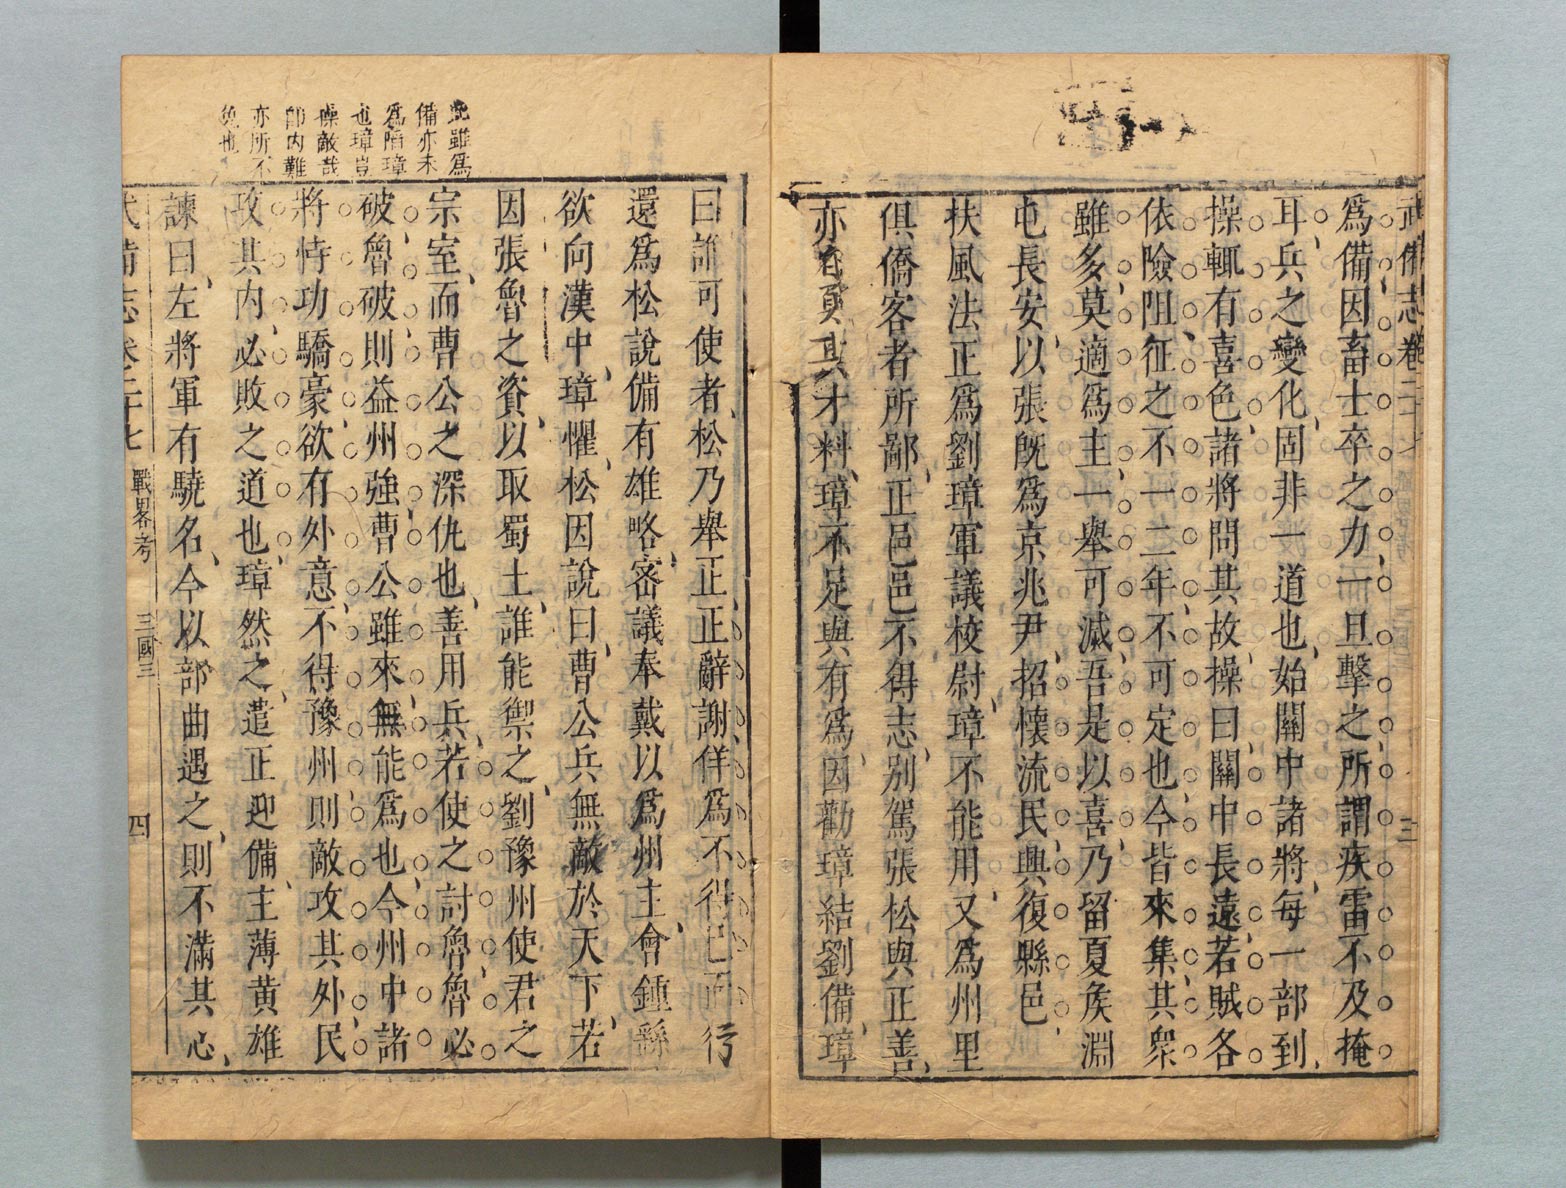 武備志卷二十七
三
爲備因畜士卒之力一旦擊之所謂疾雷不及掩
耳兵之變化固非一道也始關中諸將每一部到
操輒有喜色諸將問其故操曰關中長遠若賊各
依險阻征之不一二年不可定也今皆來集其衆
雖多莫適爲主一舉可滅吾是以喜乃留夏矦淵
屯長安以張旣爲京兆尹招懷流民興復縣邑
扶風法正爲劉璋軍議校尉璋不能用又爲州里
俱僑客者所鄙正邑邑不得志別駕張松與正善
亦自負其才料璋不足與有爲因勸璋結劉備璋
曰誰可使者松乃舉正正辭謝佯爲不得已而行
還爲松說備有雄略密議奉戴以爲州主會鍾繇
欲向漢中璋懼松因說曰曹公兵無敵於天下若
因張魯之資以取蜀土誰能禦之劉豫州使君之
宗室而曹公之深仇也善用兵若使之討魯魯必
破魯破則益州強曹公雖來無能爲也今州中諸
將恃功驕豪欲有外意不得豫州則敵攻其外民
攻其內必敗之道也璋然之遣正迎備主薄黄雄
諫曰左將軍有驍名今以部曲遇之則不滿其心
雖爲
備亦未
爲陷璋
也璋豈
操敵哉
卽內難
亦所不
免也
武備志卷二十七
戰畧考
三國三
四